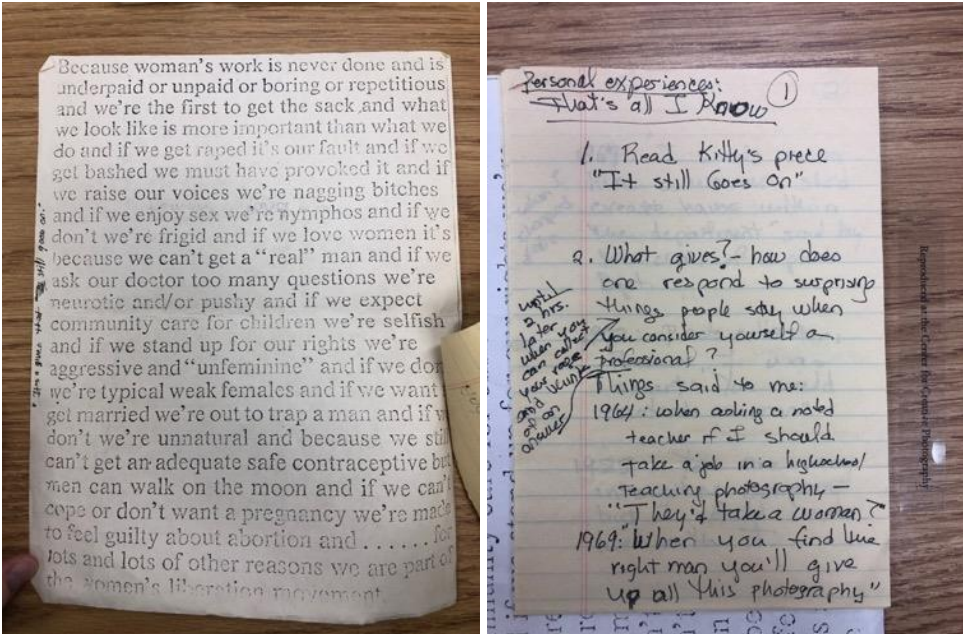 Because woman's work is never done and is
underpaid or unpaid or boring or repetitious
and we're the first to get the sack and what
we look like is more important than what we
do and if we get raped it's our fault and if we
get bashed we must have provoked it and if
we raise our voices we're nagging bitches
and if we enjoy sex we're nymphos and if we
don't we're frigid and if we love women it's
because we can't get a "real" man and if we
ask our doctor too many questions we're
neurotic and/or pushy and if we expect
community care for children we're selfish
and if we stand up for our rights we're
aggressive and "unfeminine" and if we don
we're typical weak females and if we want
get married we're out to trap a man and if w
don't we're unnatural and because we still
can't get an adequate safe contraceptive but
men can walk on the moon and if we can't
cope or don't want a pregnancy we're made
to feel guilty about abortion and ...... for
lots and lots of other reasons we are part of
the women's liberation movement
that still goes on."
Personal experiences:
That's all I Know
1
1. Read Kitty's piece
"It still Goes on"
2. What gives? - how does
one respond to surprising
things people say when
you consider yourself a
professional?
until
2 hrs.
later
when you
can collect
your rage
and think
of an
answer
Things said to me:
1964: when asking a noted
teacher if I should
take a job in a highschool
teaching photography -
"They'd take a woman?
1969: When you find the
right man you'll give
up all this photography"
Reproduced at the Center for Creative Photography